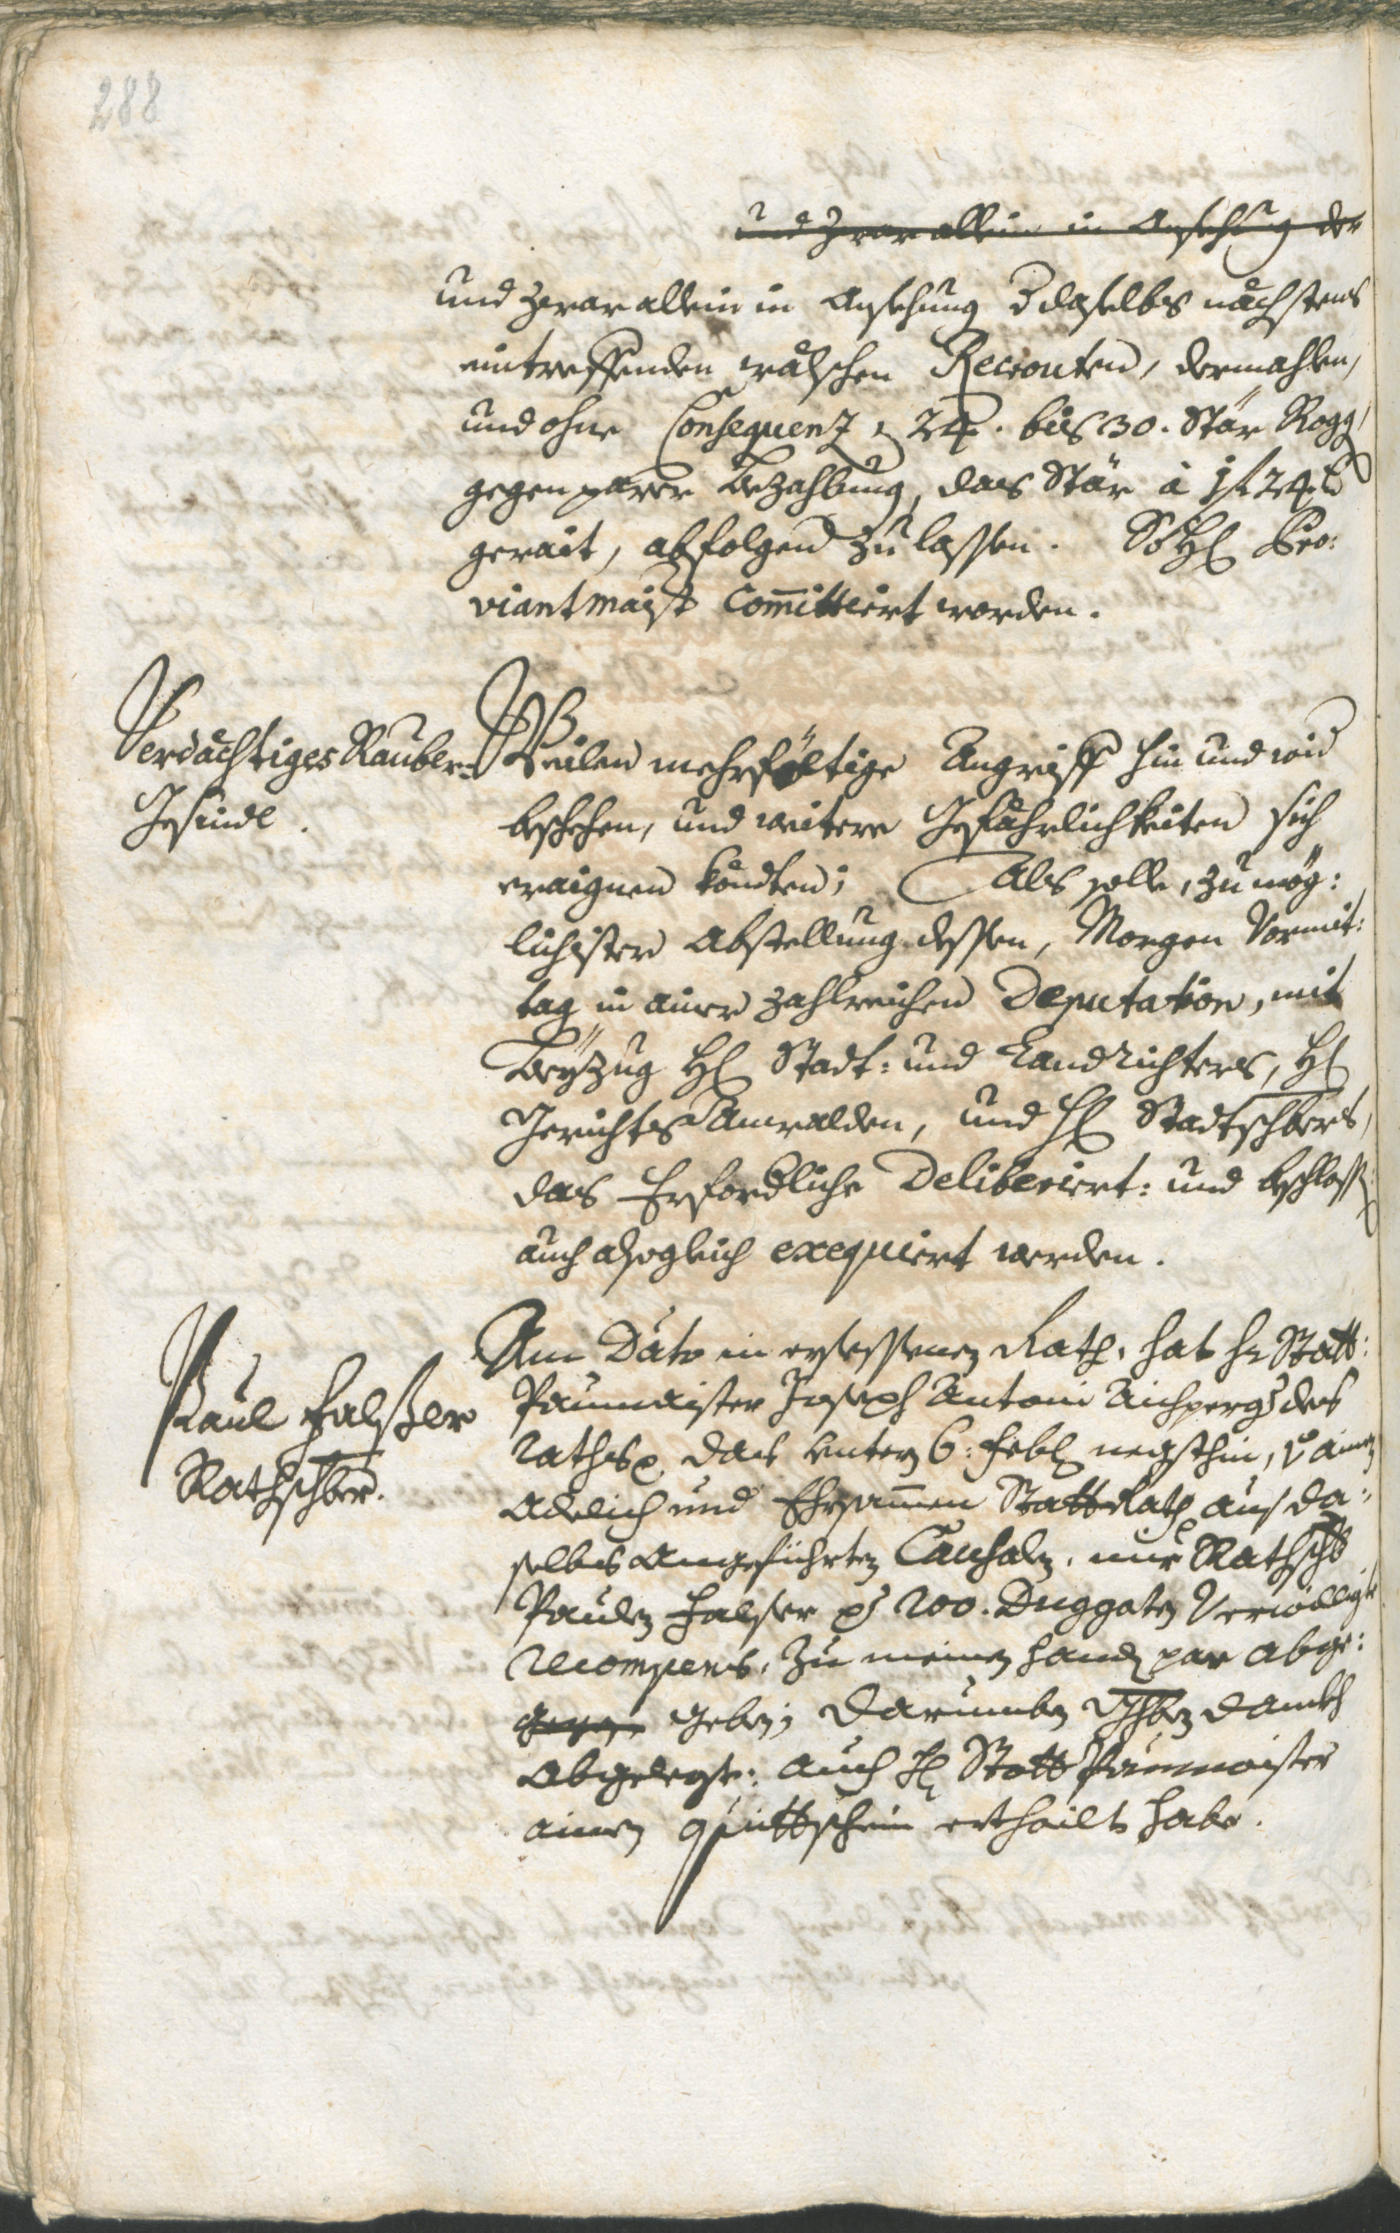 288
und zwar allein in Ansehung der
und zwar allein in Ansehung daselbs nächstens
eintreffenden wälschen Recrouten, dermahlen,
und ohne Consequenz 24. bis 30. Stär Rogg
gegen parer Bezahlung, das Stär à 1 f 24 k
gerait, abfolgen zu lassen. So H. Pro:
viantmaist. Committiert worden.
Verdächtiges Rauber=
Gesindl.
Weilen mehrfältige Angriff hin und wid
beschehen, und weitere Gefährlichkeiten sich
eraignen köndten; Als solle, zu mög:
lichister Abstellung dessen, Morgen Vormit:
tag in ainer zahlreichen Deputation, mit
Beyzug H. Stadt: und Landrichters, H.
Gerichts Anwalden, und H. Stadtschbers,
das Erfordliche Deliberiert: und beschloss
auch alsogleich exequiert werden.
Paul Halser
Rathschber.
Am Dato in ersessenen Rath, hat H. Statt:
Paumaister Joseph Antoni Aichperg. des
Raths das untern 6. Feb. negsthin, v. ainen
Adelich und Ehrsammen Statt Rath aus da:
selbs angeführten Causalen, mir Rathschb
Paulen Halser p. 200. Duggaten Verwilligte
Recompens, zu meinen handen par abge:
geben; darumben Ichben danckh
abgelegt: auch H. Statt Paumaister
ainen Quittschein erthailt habe.